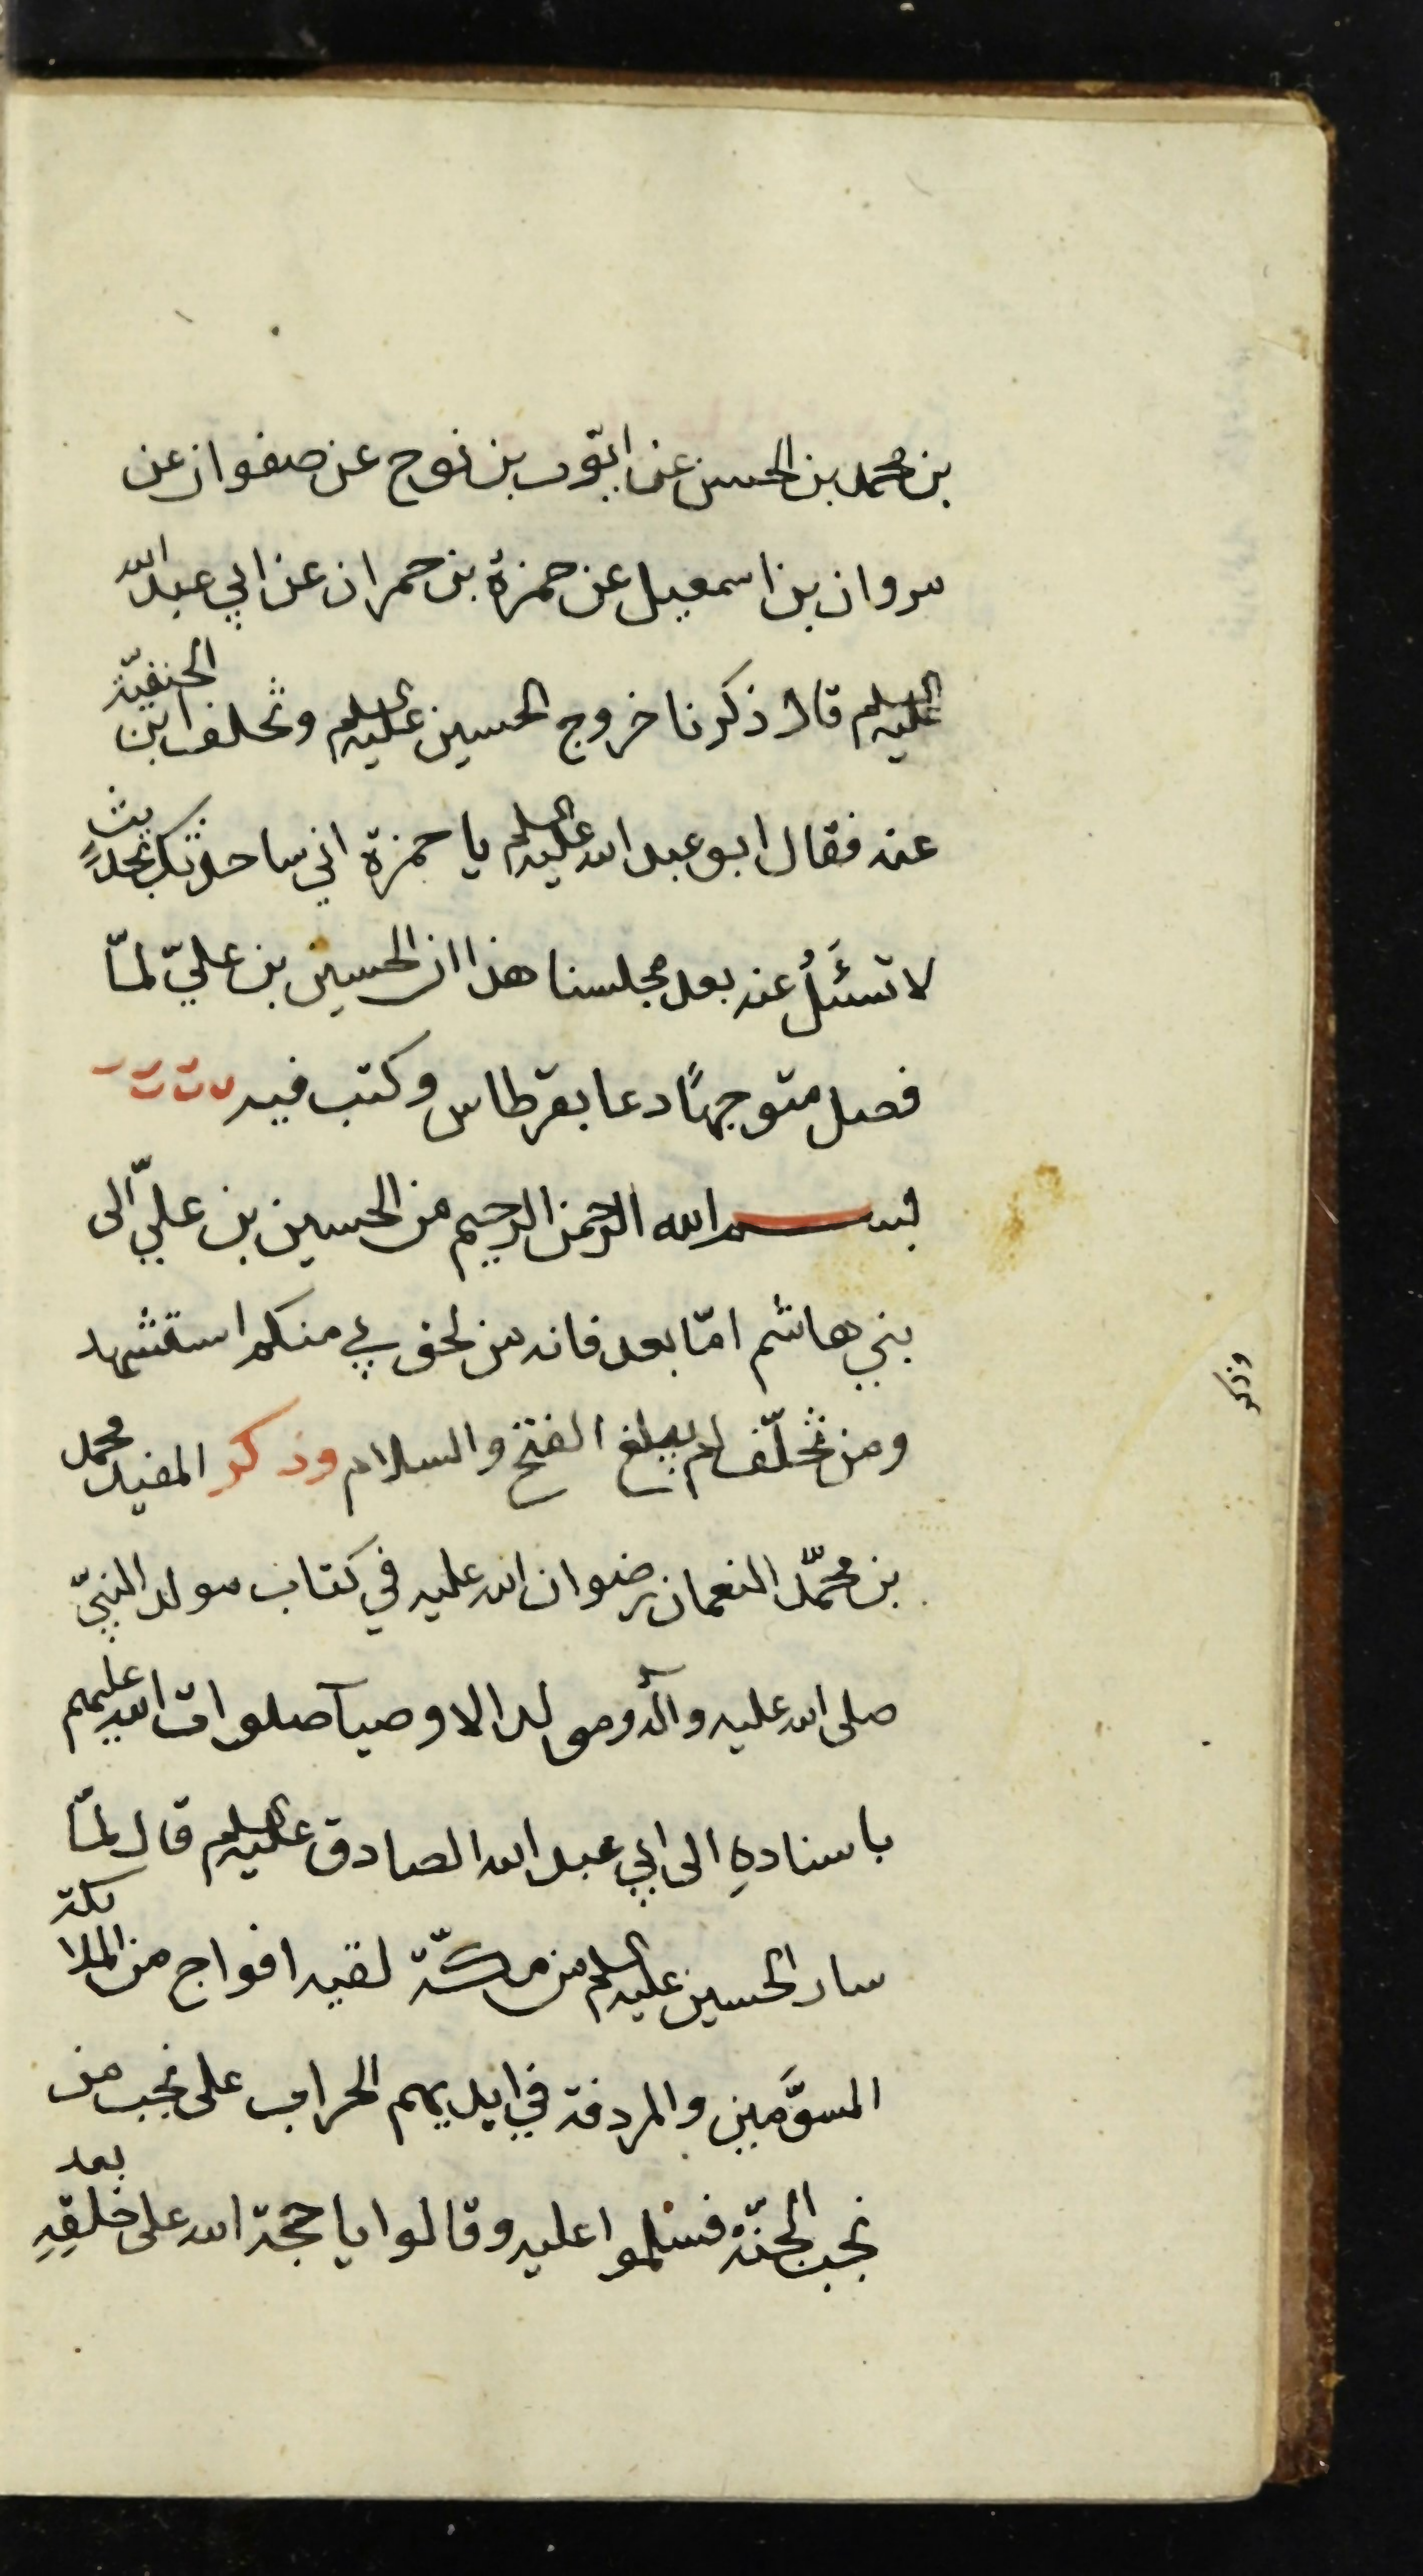 بن محمد بن الحسن عن ايّوب بن نوح عن صفوان عن
مروان بن اسمعيل عن حمزة بن حمران عن ابي عبد الله
عليه السلم قال ذكرنا خروج الحسين عليه السلم وتخلف ابن الحنفيّة
عنه فقال ابو عبد الله عليه السلم يا حمزة اني ساحدثك بحديثٍ
لا تسئَلُ عنه بعد مجلسنا هذا ان الحسين بن عليّ لمّا
فصل متوجهًا دعا بقرطاس وكتب فيه
بسم الله الرحمن الرحيم من الحسين بن عليّ الى
بني هاشم امّا بعد فانه من لحق بي منكم استشهد
ومن تخلّف لم يبلغ الفتح والسلام وذكر المفيد محمد
بن محمّد النعمان رضوان الله عليه في كتاب مولد النبيّ
صلى الله عليه وآله ومولد الاوصيآ صلوات الله عليهم
باسنادهِ الى ابي عبد الله الصادق عليه السلم قال لمّا
سار الحسين عليه السلم من مكّة لقيه افواج من الملائكة
المسوَّمين والمردفة في ايديهم الحراب على نجب من
نجب الجنّة فسلموا عليه وقالوا يا حجة الله على خلقِهِ بعد
وذكر